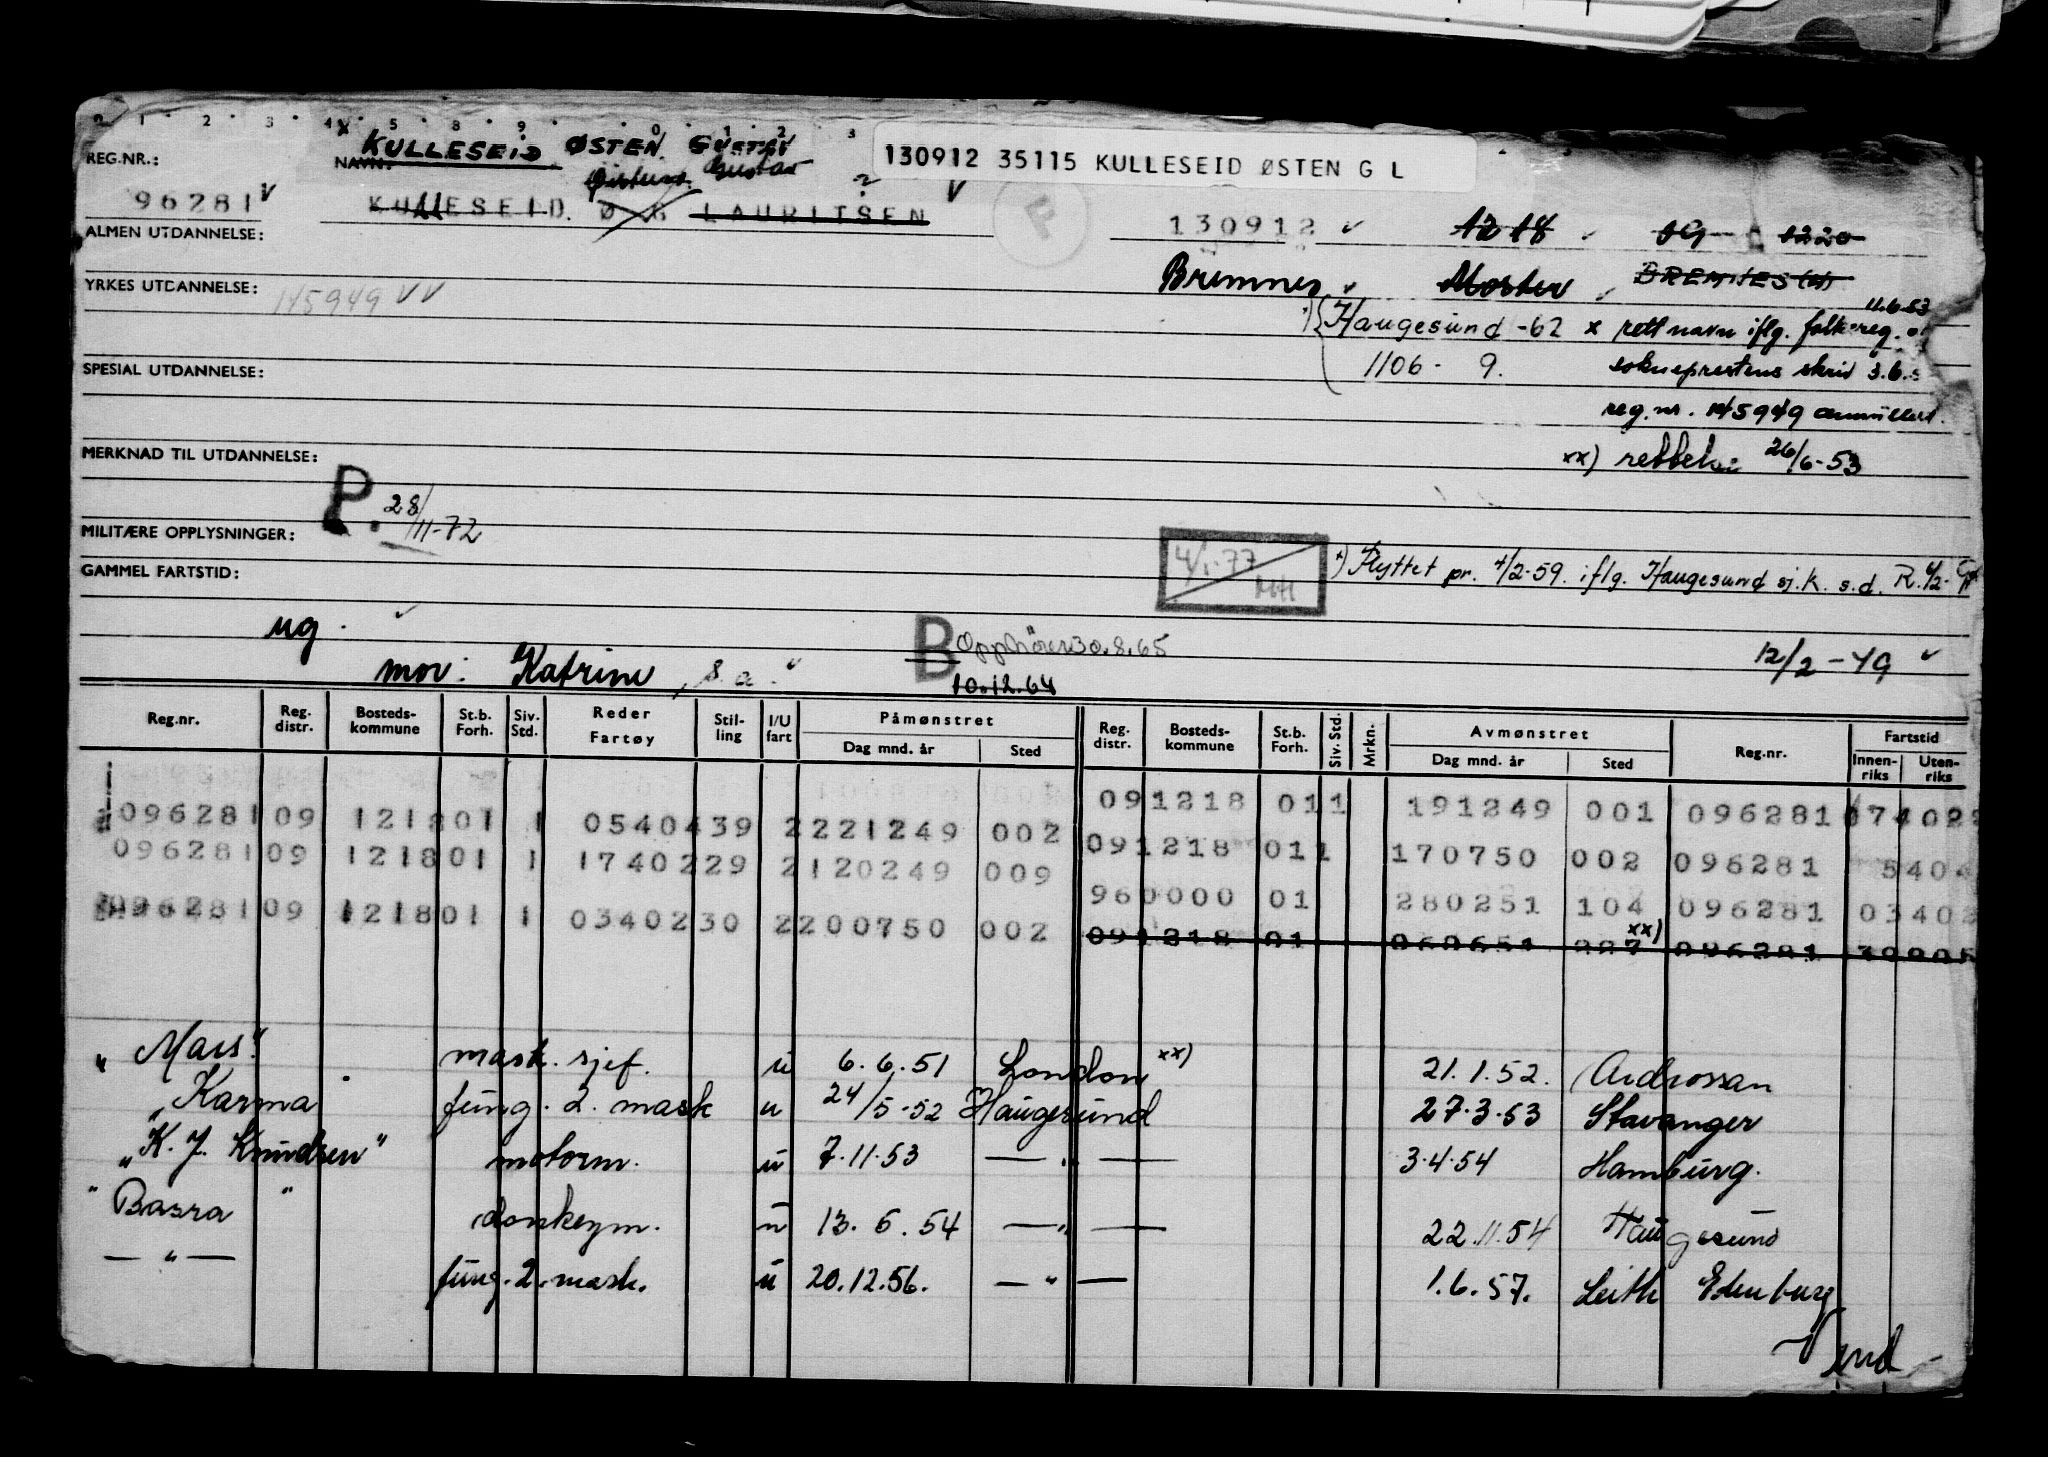 KULLESEID ØSTEN GUSTAV
REG.NR.: NAVN: Gustav
130912 35115 KULLESEID ØSTEN G L
96281 KULLESEID. Ø G LAURITSEN
F
130912 1218 09 1220
ALMEN UTDANNELSE:
Bremnes Moster BREMNES (H)
YRKES UTDANNELSE: 145949
11.6.53
*) Haugesund -62 x rett navn iflg. folkereg. og
1106 - 9. sokneprestens skriv 3.6.
SPESIAL UTDANNELSE:
reg.nr. 145949 annullert.
MERKNAD TIL UTDANNELSE:
xx) rettelse 26/6-53
P. 28/11-72
MILITÆRE OPPLYSNINGER:
4/1-77 MH
*) Flyttet pr. 4/2-59. iflg. Haugesund sj.k. s.d.
GAMMEL FARTSTID:
ug.
B Opphører 30.8.65
mor: Katrine, s.a.
10.12.64
12/2-49
Reg.nr. Reg. distr. Bosteds-kommune St.b. Forh. Siv. Std. Reder Fartøy Stil-ling I/U fart Påmønstret Dag mnd. år Sted Reg. distr. Bosteds-kommune St.b. Forh. Siv. Std. Mrkn. Avmønstret Dag mnd. år Sted Reg.nr. Fartstid Innen-riks Uten-riks
091218 011 191249 001 096281
096281 09 121801 1 0540439 2221249 002
091218 011 170750 002 096281 5404
096281 09 121801 1 1740229 2120249 009
960000 01 280251 104 096281 03402
096281 09 121801 1 0340230 2200750 002
xx)
091218 01 060651 227 096281
"Mars" mask. sjef. u 6.6.51 London xx) 21.1.52. Ardrossan
"Karma fung. 2. mask u 24/5-52 Haugesund 27.3.53 Stavanger
"K. J. Knudsen" motorm. u 7.11.53 — " — 3.4.54 Hamburg.
"Basra" donkeym. u 13.6.54 — " — 22.11.54 Haugesund
— " — fung. 2. mask. u 20.12.56. — " — 1.6.57. Leith Edenburg
Vend